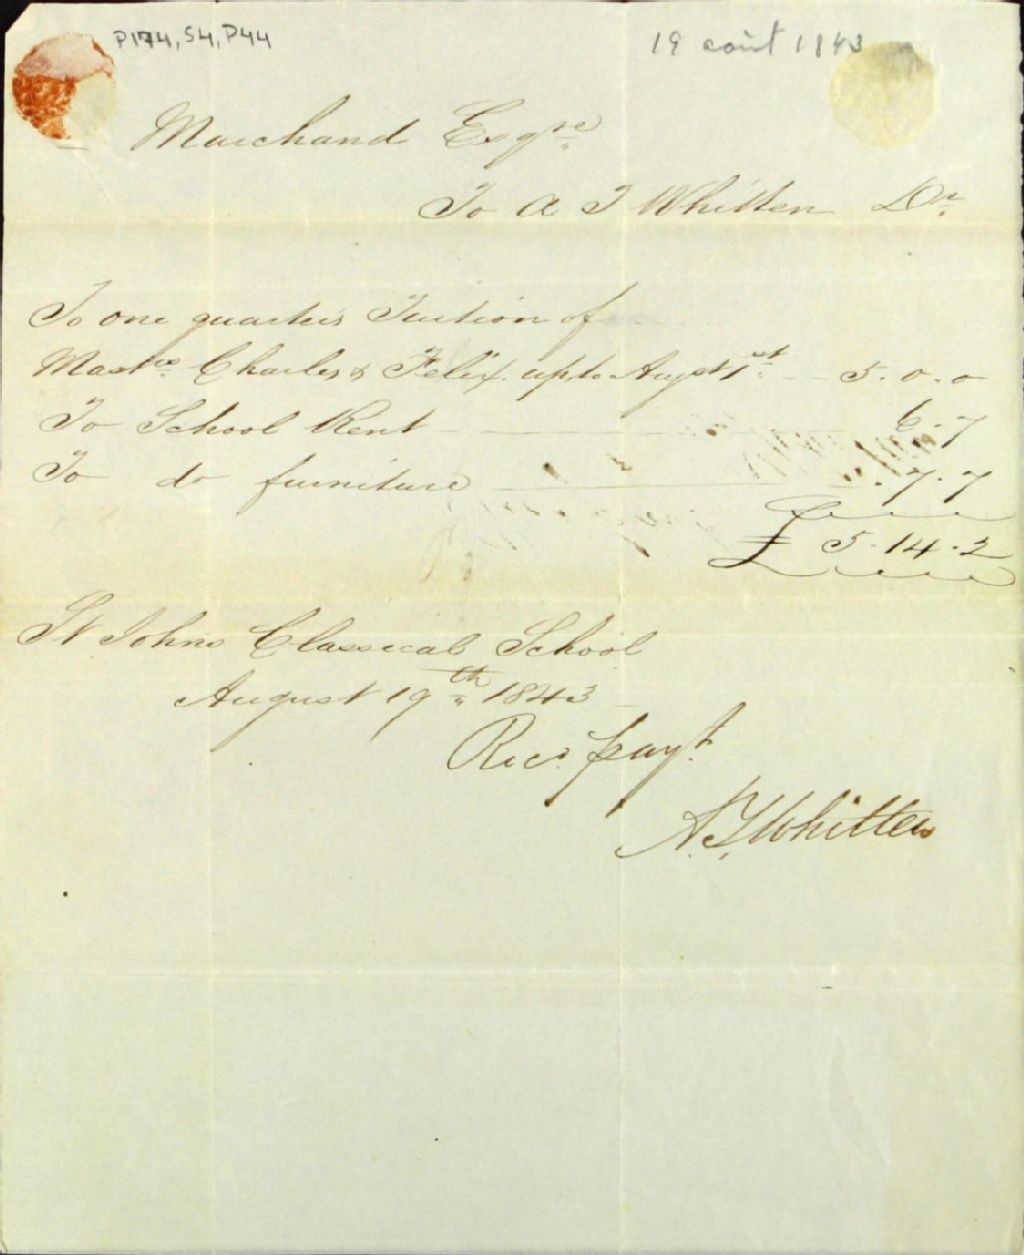 P174, S4, P44
19 août 1843
Marchand Esqre
To A T Whitten Dr.
To one quarters Tuition of
Mastrs Charles & Felix up to Augst 1st. 5.0.0
To School Rent 6.7
To do furniture 7.7
£ 5.14.2
St Johns Classical School
August 19th 1843
Recd. payt.
A.T. Whitten